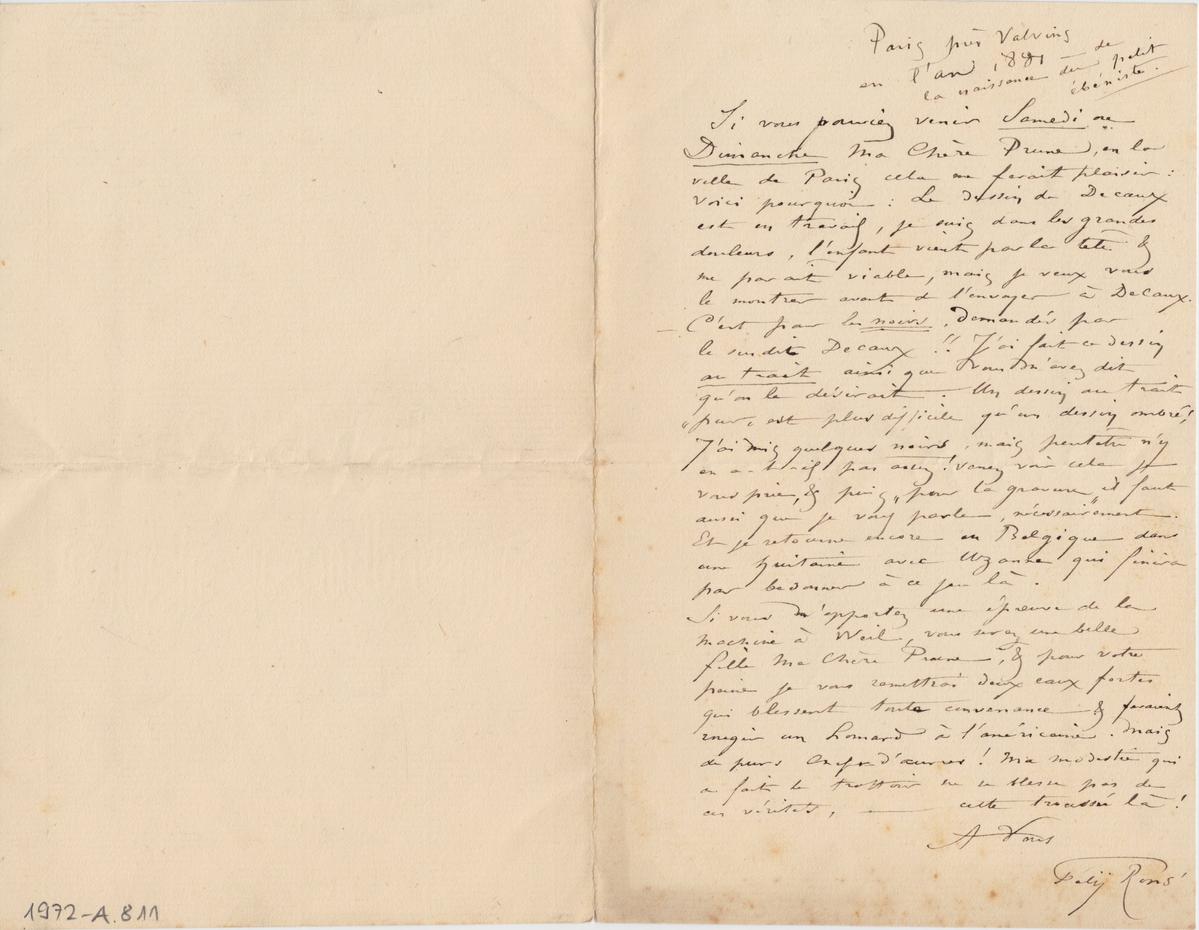 Paris près Valvins
en l'an 1881 – de
la naissance du petit
ébéniste.
Si vous pouviez venir Samedi ou
Dimanche Ma Chère Prune, en la
ville de Paris cela me ferait plaisir :
Voici pourquoi : Le dessin de Decaux
est en travail, je suis dans les grandes
douleurs, l'enfant vient par la tête &
me parait viable, mais je veux vous
le montrer avant de l'envoyer à Decaux.
– C'est pour les noirs, demandés par
le susdit Decaux !! J'ai fait ce dessin
au trait ainsi que vous m'avez dit
qu'on le désirait. Un dessin au trait
« pur, est plus difficile qu'un dessin ombré!
J'ai mis quelques noirs, mais peutêtre n'y
en a-t-il pas assez! Venez voir cela je
vous prie, & puis, pour la gravure, il faut
aussi que je vous parle, nécessairement.
Et je retourne encore en Belgique dans
une huitaine avec Uzanne qui finira
par bedonner à ce jeu là.
Si vous m'apportez une épreuve de la
machine à Weil, vous serez une belle
fille Ma Chère Prune, & pour votre
peine je vous remettrai deux eaux fortes
qui blessent toute convenance & feraient
rougir un homard à l'américaine. Mais
de purs chefs d'œuvres ! Ma modestie qui
a fait le trottoir ne se blesse pas de
ces vérités, — cette troussée là !
A Vous
Fély Rops
1972-A.811